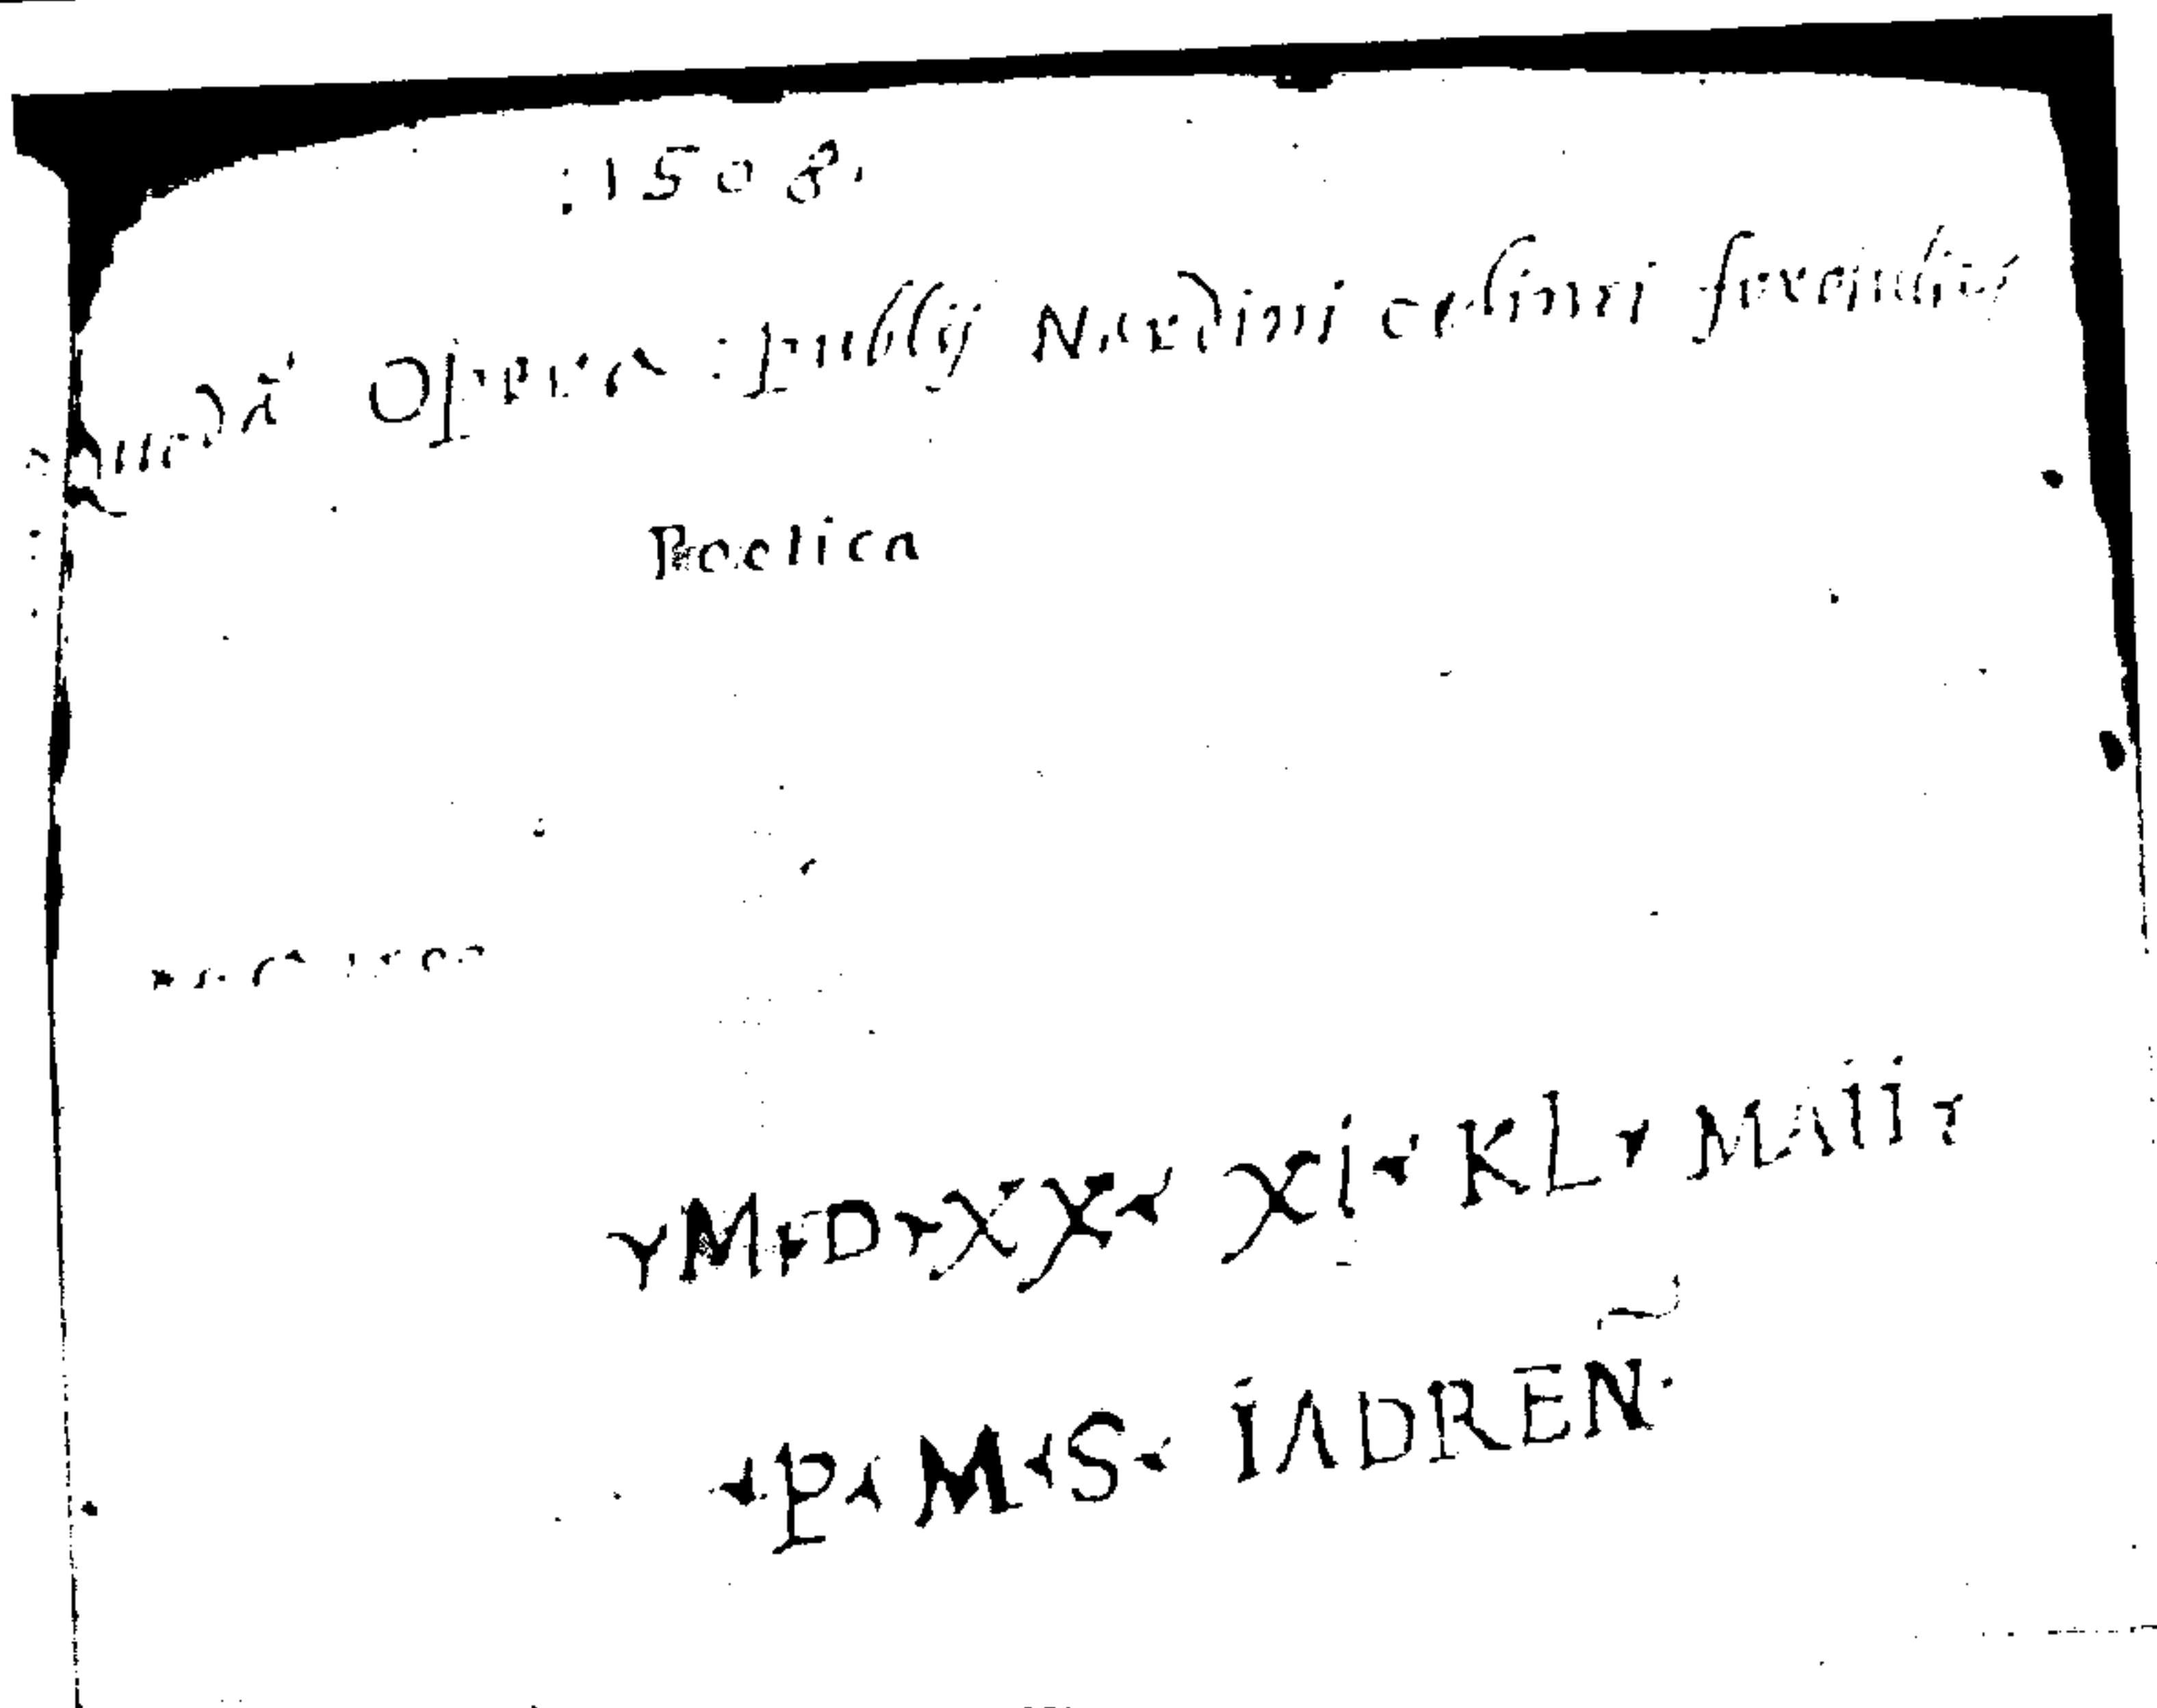 :1508.
Quedã Opera : publij Nardini celinei
Poetica
M·D·XX· XI· KL· MAII·
·P·M·S· IADREÑ·